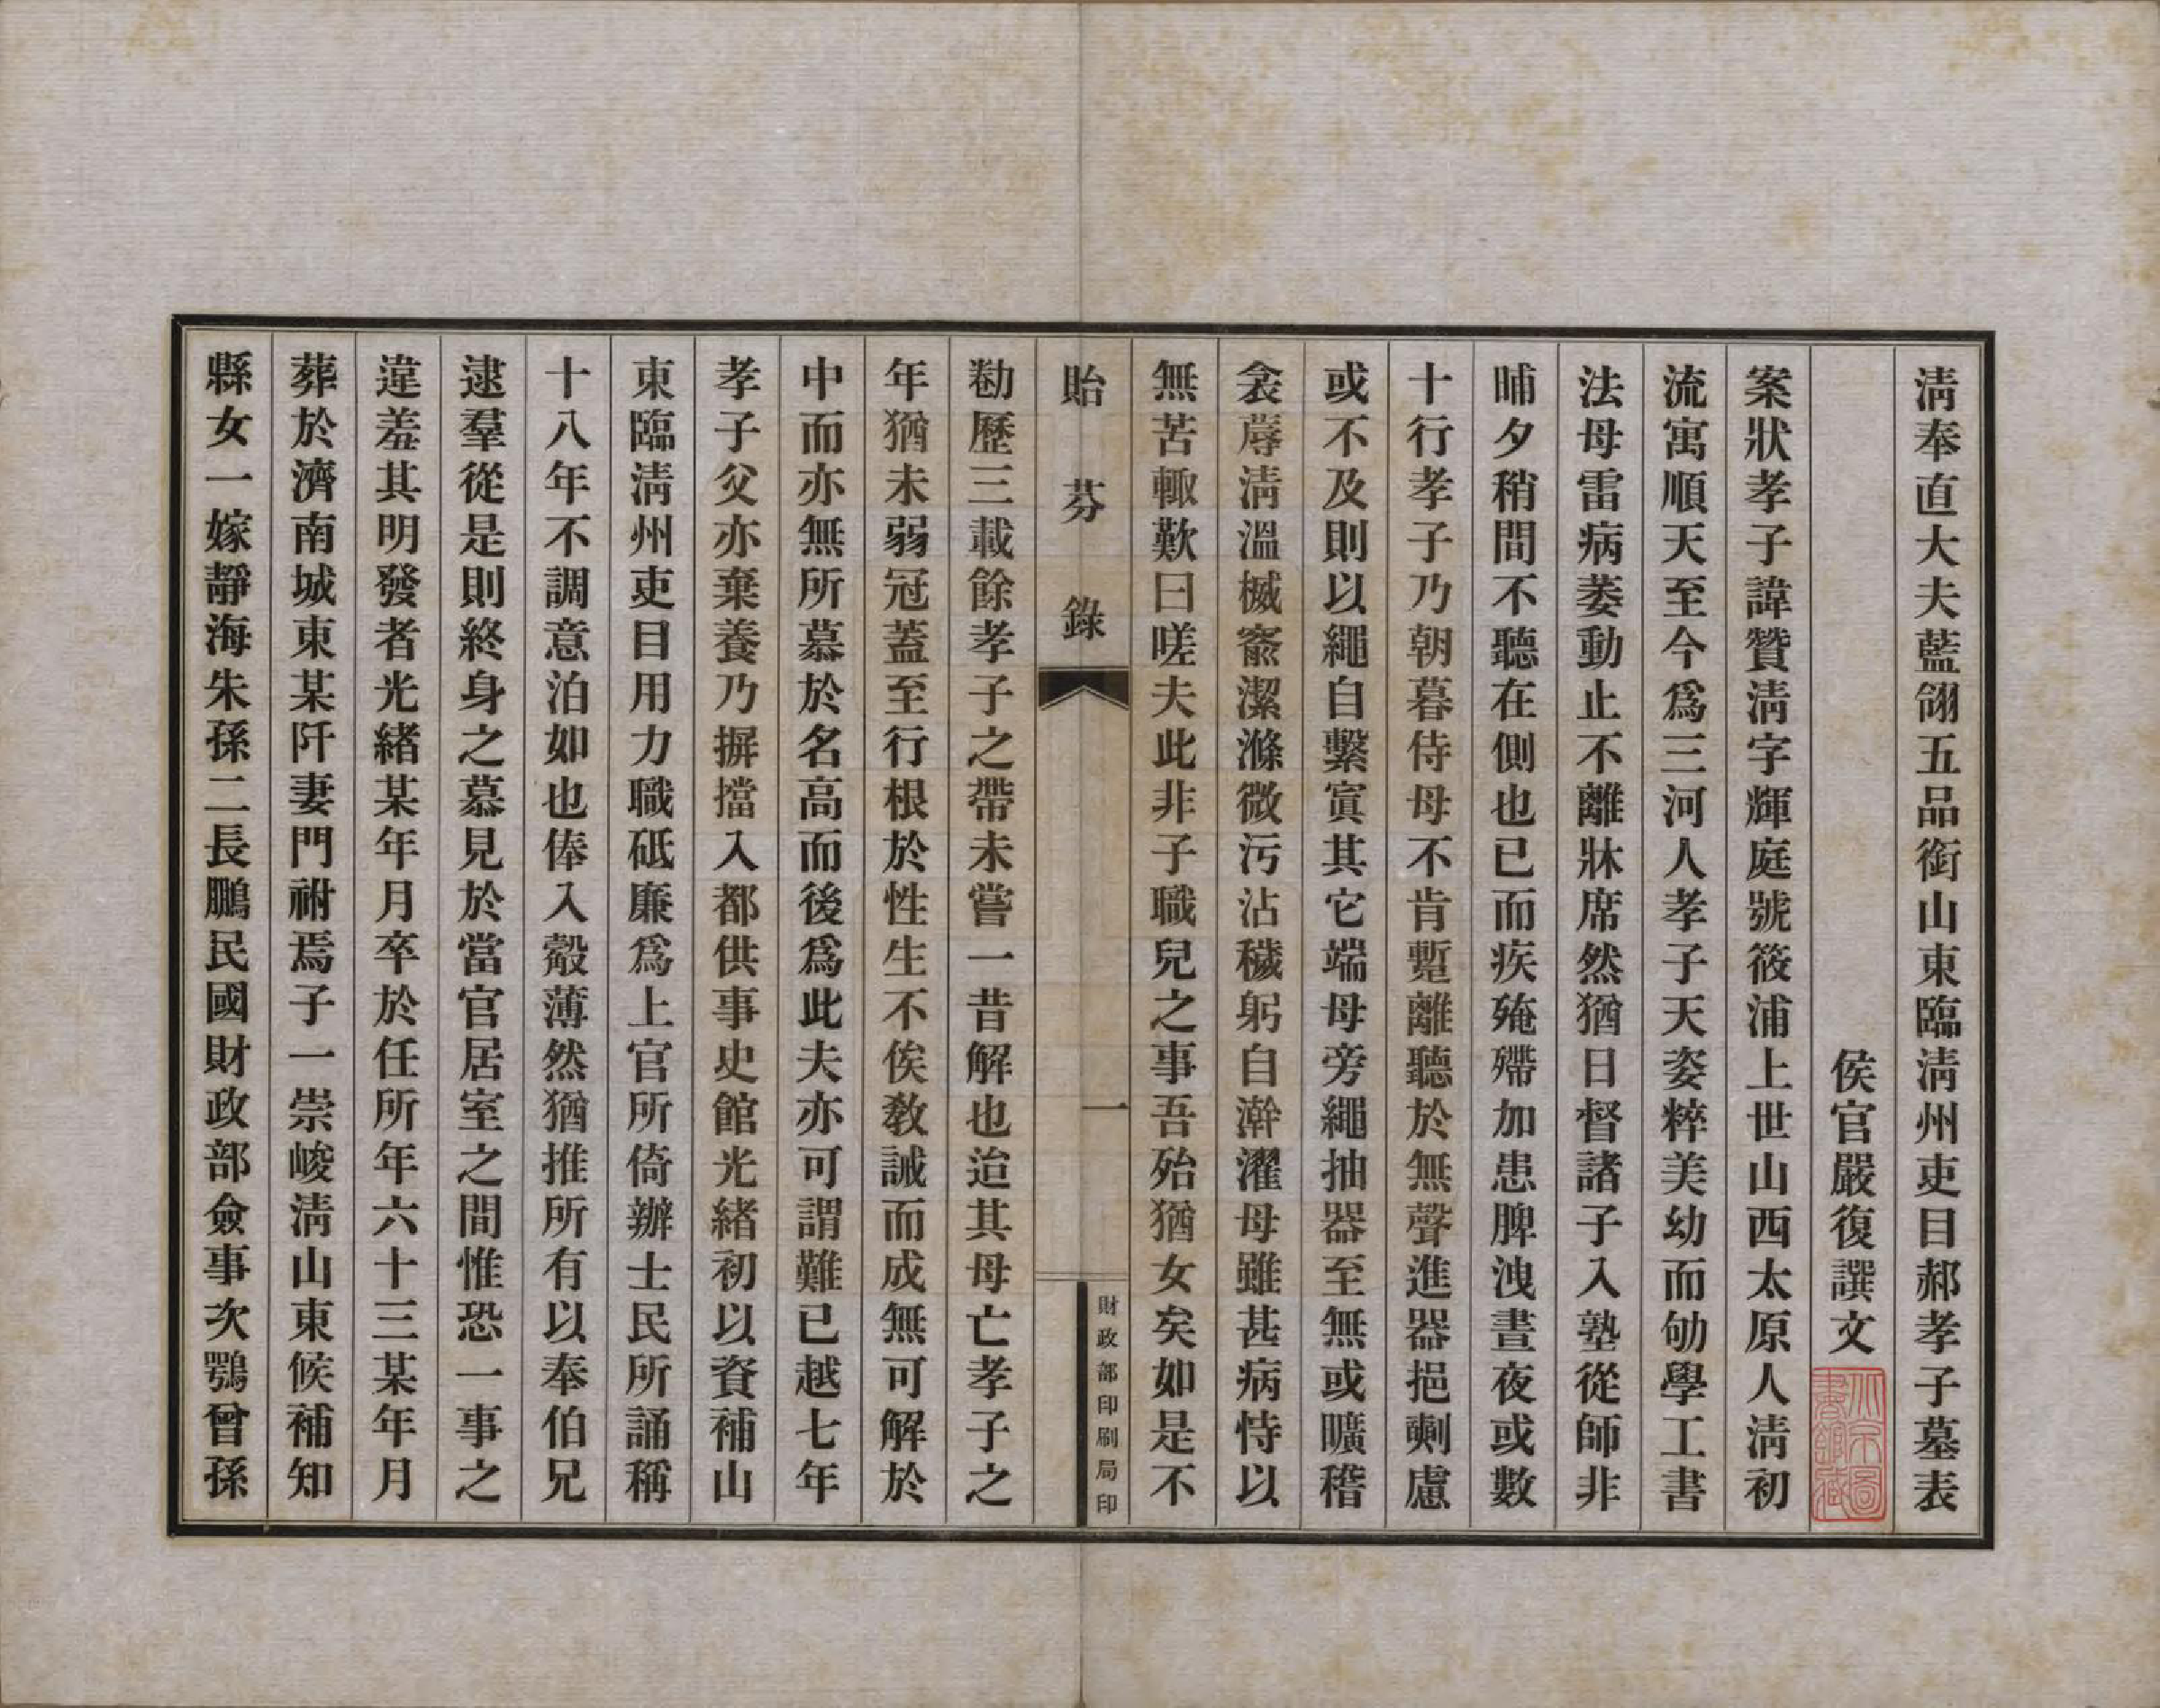 清奉直大夫藍翎五品銜山東臨清州吏目郝孝子墓表
侯官嚴復譔文
案狀孝子諱贊清字輝庭號筱浦上世山西太原人清初
流寓順天至今爲三河人孝子天姿粹美幼而劬學工書
法母雷病萎動止不離牀席然猶日督諸子入塾從師非
晡夕稍間不聽在側也已而疾殗殢加患脾洩晝夜或數
十行孝子乃朝暮侍母不肯蹔離聽於無聲進器挹劑慮
或不及則以繩自繫寘其它端母旁繩抽器至無或曠稽
衾蓐清溫楲窬潔滌微污沾穢躬自澣濯母雖甚病恃以
無苦輙歎曰嗟夫此非子職兒之事吾殆猶女矣如是不
勌歷三載餘孝子之帶未嘗一昔解也迨其母亡孝子之
年猶未弱冠蓋至行根於性生不俟敎誡而成無可解於
中而亦無所慕於名高而後爲此夫亦可謂難已越七年
孝子父亦棄養乃摒擋入都供事史館光緒初以資補山
東臨清州吏目用力職砥廉爲上官所倚辦士民所誦稱
十八年不調意泊如也俸入觳薄然猶推所有以奉伯兄
逮羣從是則終身之慕見於當官居室之間惟恐一事之
違羞其明發者光緒某年月卒於任所年六十三某年月
葬於濟南城東某阡妻門祔焉子一崇峻清山東候補知
縣女一嫁靜海朱孫二長鵬民國財政部僉事次鶚曾孫
貽芬錄
一
財政部印刷局印